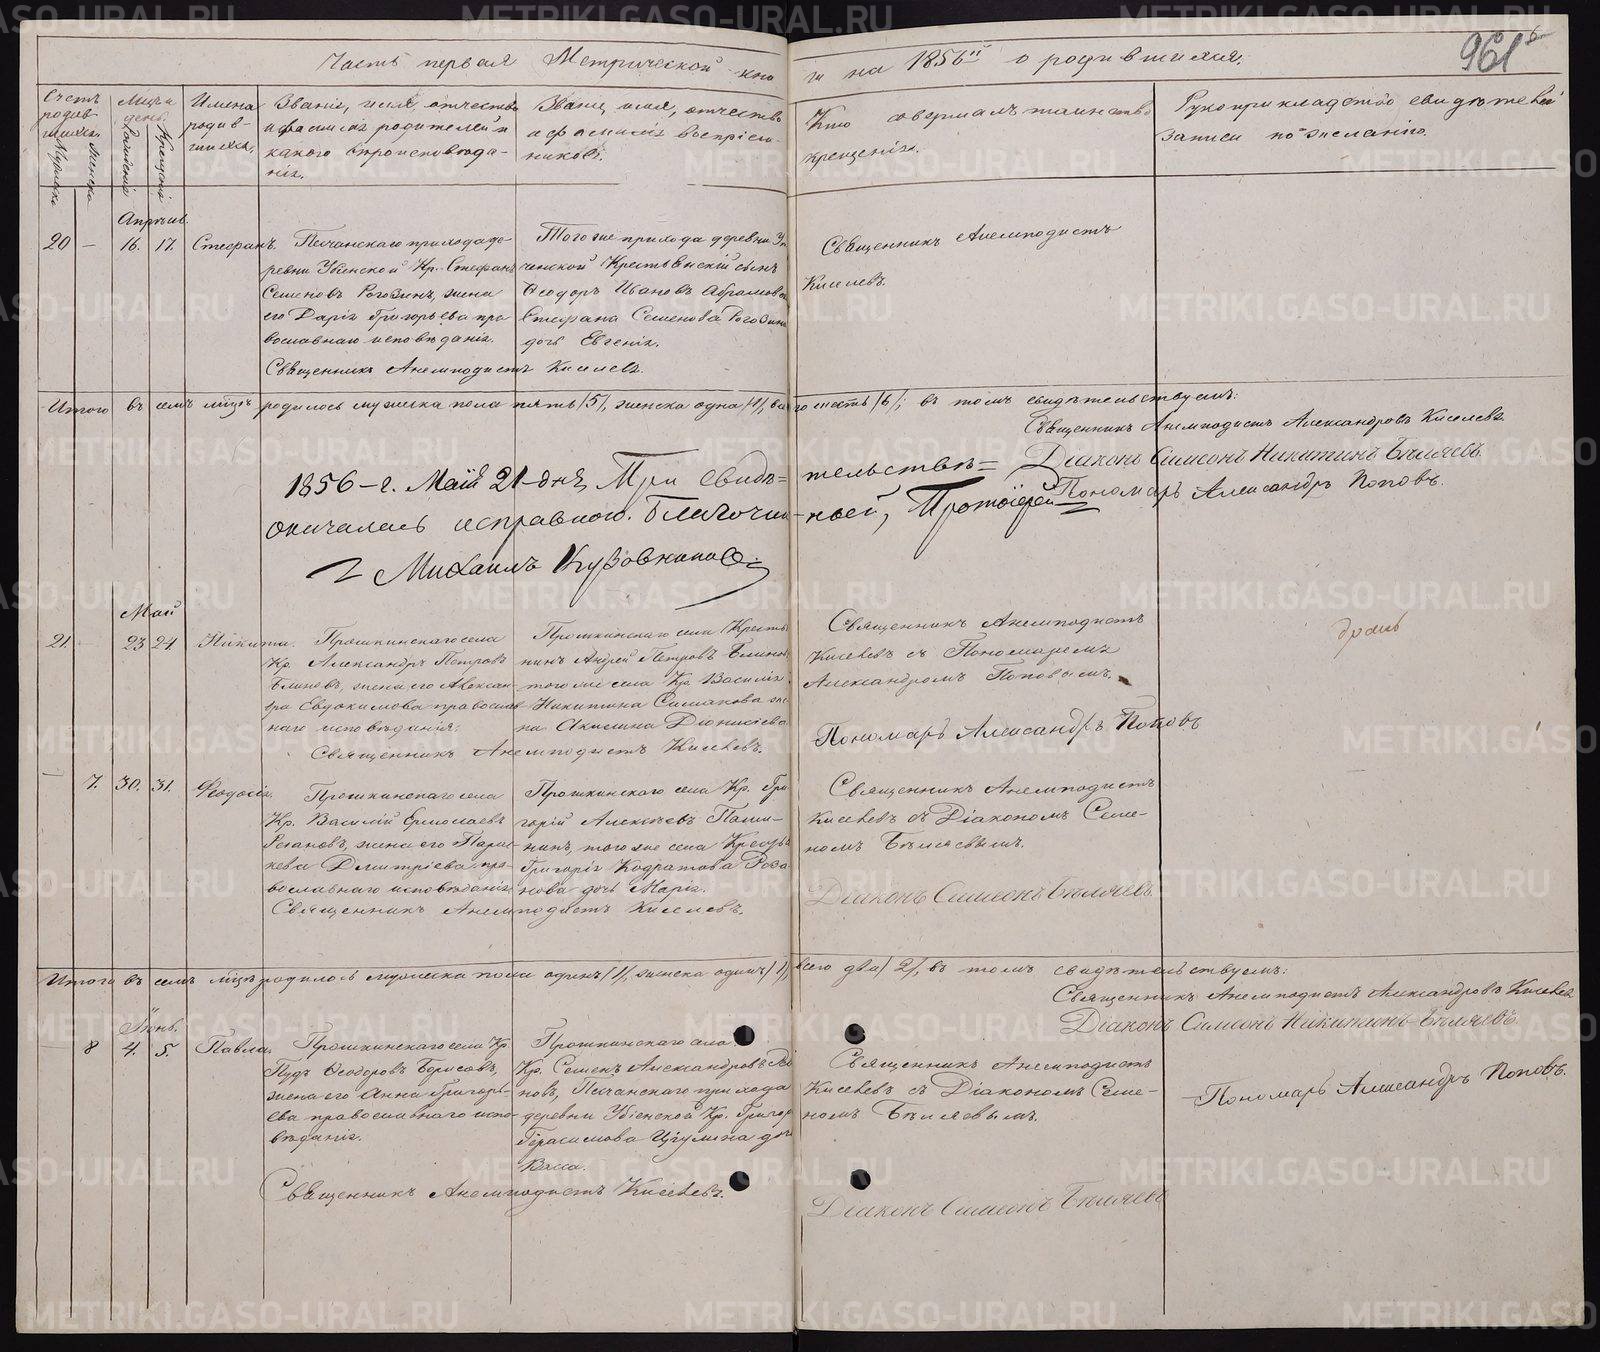 Часть первая Метрической кни
ги на 1856й о родившихся.
961
Счетъ родившихся
Мужска
Женска
Мѣсяцъ и день.
Рожденія
Крещенія
Имена родив-
шихся.
Званіе, имя, отчество
и фамилія родителей и
какого вѣроисповѣда-
нія.
Званіе, имя, отчество
и фамилія воспріем-
никовъ.
Кто совершалъ таинство
крещенія.
Рукоприкладство свидѣтелей
записи по желанію.
Апрѣль.
20 — 16. 17. Стефанъ.
Песчанскаго прихода де-
ревни Убіенской Кр. Стефанъ
Семеновъ Рогозинъ, жена
его Дарія Григорьева пра-
вославнаго исповѣданія.
Священникъ Анемподистъ Киселевъ.
Того же прихода деревни
Крестьянскій сынъ
Ѳеодоръ Ивановъ Абрамовъ
Стефана Семенова Рогозина
дочь Евгенія.
Священникъ Анемподистъ
Киселевъ.
Итого въ семъ мѣсяцѣ родилось мужска пола пять /5/, женска одна /1/, все
го шесть /6/; въ томъ свидѣтельствуемъ:
Священникъ Анемподистъ Александровъ Киселевъ.
Діаконъ Симеонъ Никитинъ Бѣляевъ.
Пономарь Александръ Поповъ.
1856-г. Маія 21-дня, При свидѣ=
тельствѣ=
оказалась исправною. Благочин-
ной, Протоіерей
Михаилъ
Май
21. 23 24. Никита.
Прошкинскаго села
Кр. Александръ Петровъ
Блиновъ, жена его Алексан-
дра Евдокимова православ
наго исповѣданія.
Священникъ Анемподистъ Киселевъ.
Прошкинскаго села Кресть
нинъ Андрей Петровъ Блиновъ,
того же села Кр. Василія
Никитина Симакова же-
на Акилина Діонисіева
Священникъ Анемподистъ
Киселевъ съ Пономаремъ
Александромъ Поповымъ.
Пономарь Александръ Поповъ
— 7. 30. 31. Ѳеодосія.
Прошкинскаго села
Кр. Василій Ермолаевъ
жена его Парас-
кева Димитріева пра-
вославнаго исповѣданія
Священникъ Анемподистъ Киселевъ.
Прошкинскаго села Кр. Гри
горій Алексѣевъ
того же села Кресть
Григорія Кодратова Роза
нова дочь Марія.
Священникъ Анемподистъ
Киселевъ съ Діакономъ Симе-
номъ Бѣляевымъ.
Діаконъ Симеонъ Бѣляевъ
Итого въ семъ мѣсяцѣ родилось мужска пола одинъ /1/, женска одинъ /1/,
всего два /2/, въ томъ свидѣтельствуемъ:
Священникъ Анемподистъ Александровъ Киселевъ
Діаконъ Симеонъ Никитинъ Бѣляевъ.
Пономарь Александръ Поповъ.
Іюнь.
8 4. 5. Павла.
Прошкинскаго села Кр.
Пудъ Ѳеодоровъ Борисовъ,
жена его Анна Григорь-
ева православнаго испо-
вѣданія.
Священникъ Анемподистъ Киселевъ.
Прошкинскаго села
Кр. Семенъ Александровъ
новъ, Песчанскаго прихода
деревни Убіенской Кр. Григор
Герасимова дочь
Васса.
Священникъ Анемподистъ
Киселевъ съ Діакономъ Симе-
номъ Бѣляевымъ.
Діаконъ Симеонъ Бѣляевъ
METRIKI.GASO-URAL.RU